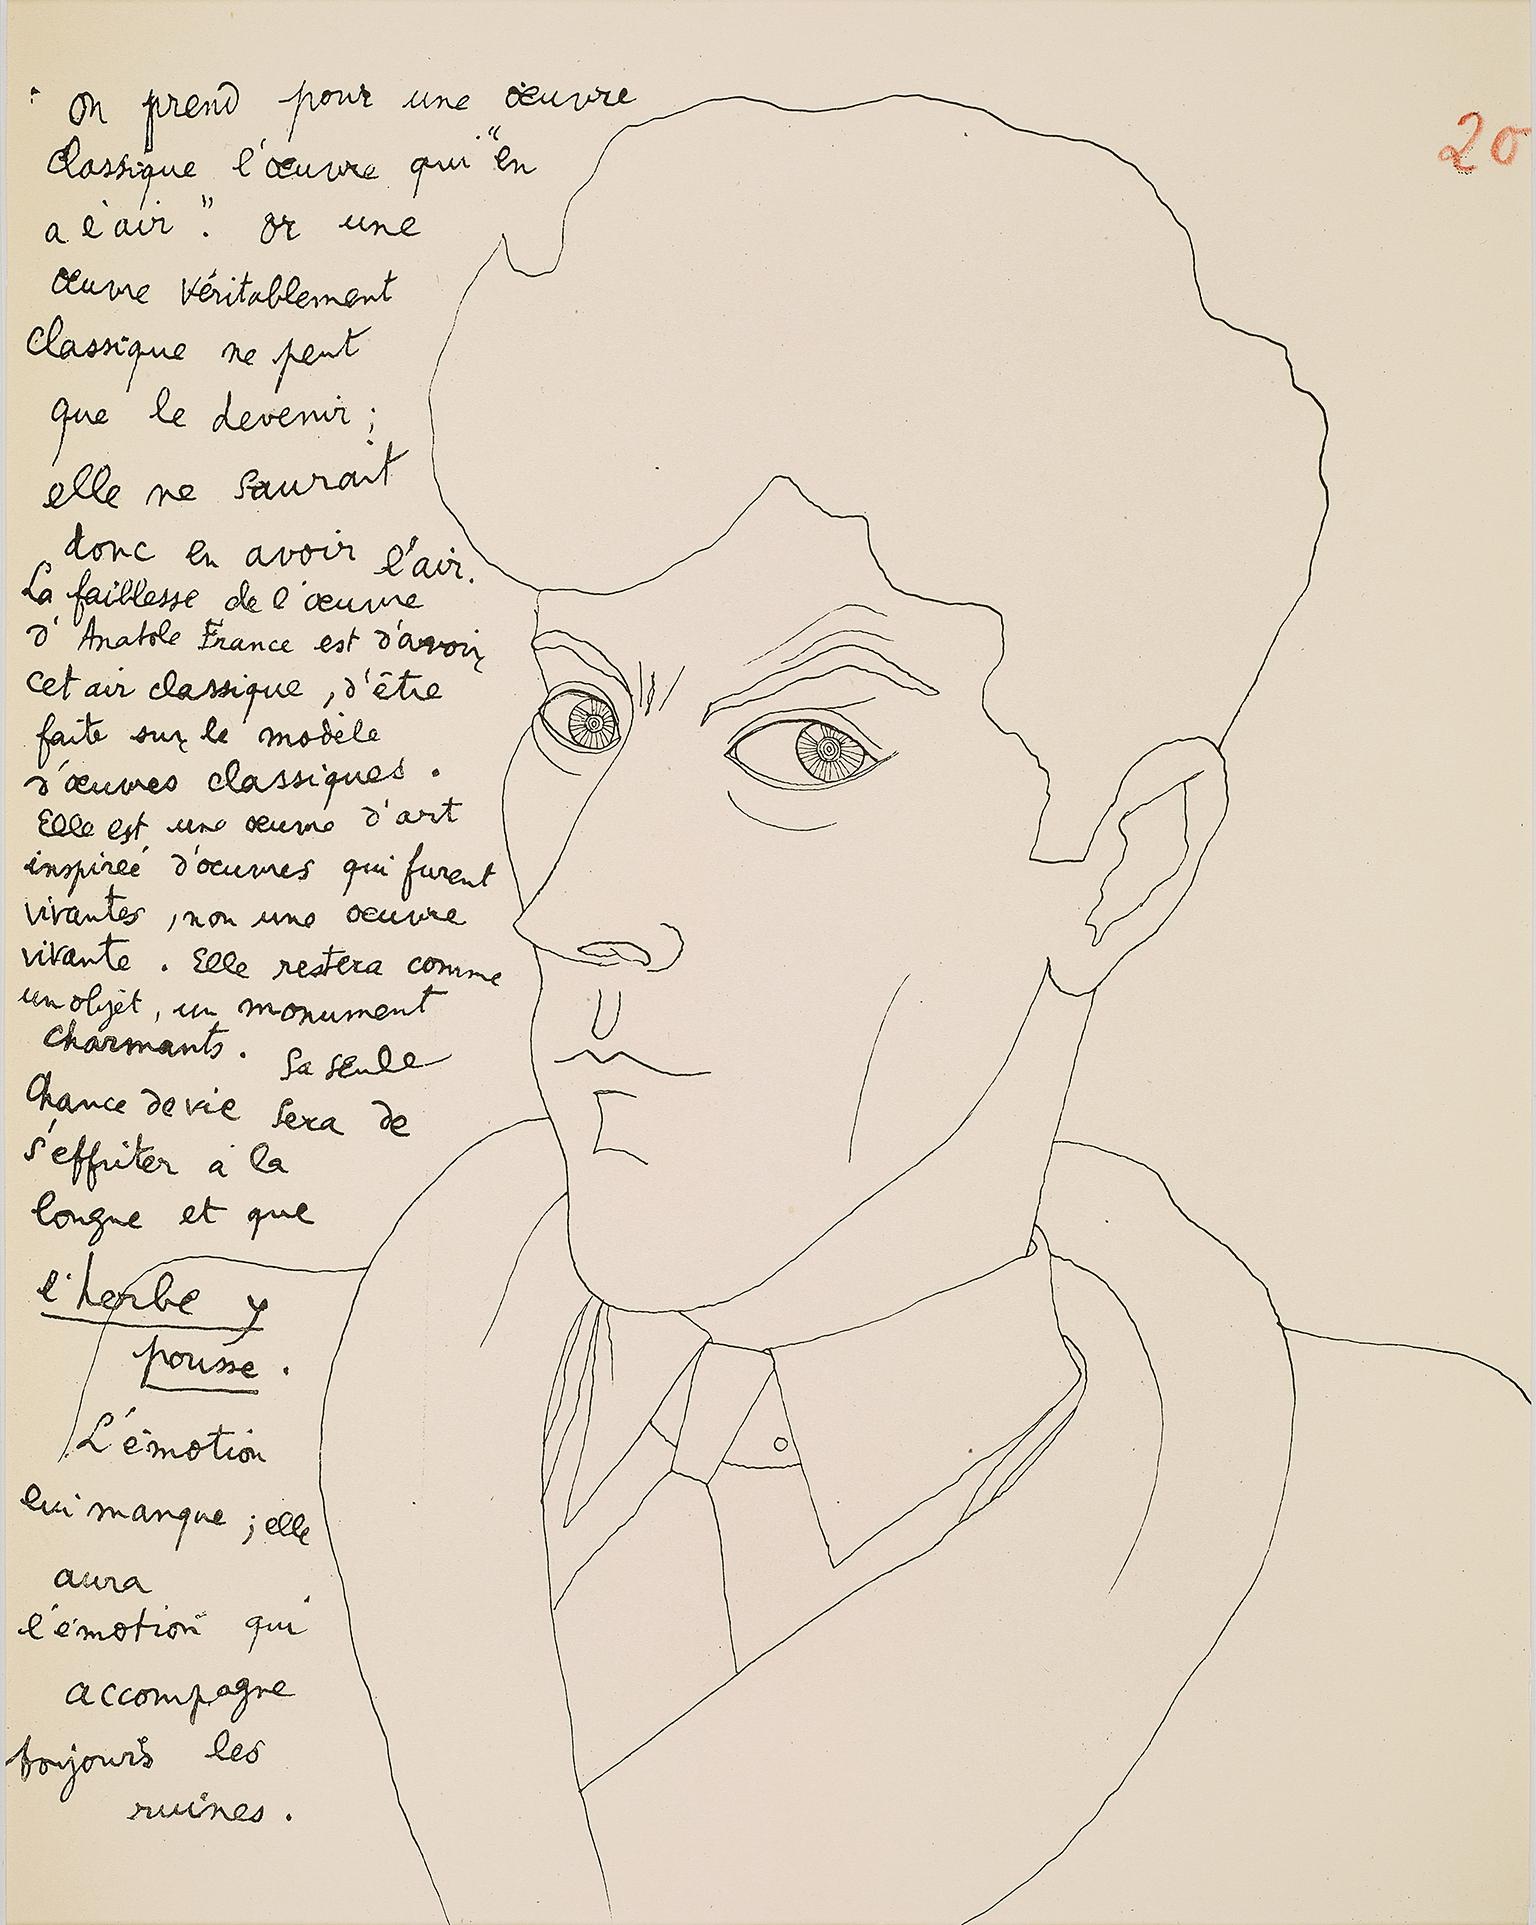 on prend pour une œuvre
classique l'œuvre qui "en
a l'air". or une
œuvre véritablement
classique ne peut
que le devenir ;
elle ne saurait
donc en avoir l'air.
La faiblesse de l'œuvre
d'Anatole France est d'avoir
cet air classique, d'être
faite sur le modèle
d'œuvres classiques.
Elle est une œuvre d'art
inspireé d'œuvres qui furent
vivantes, non une œuvre
vivante. Elle restera comme
un objet, un monument
charmants. Sa seule
chance de vie sera de
s'effriter à la
longue et que
l'herbe y
pousse.
L'émotion
lui manque ; elle
aura
l'émotion qui
accompagne
toujours les
ruines.
20